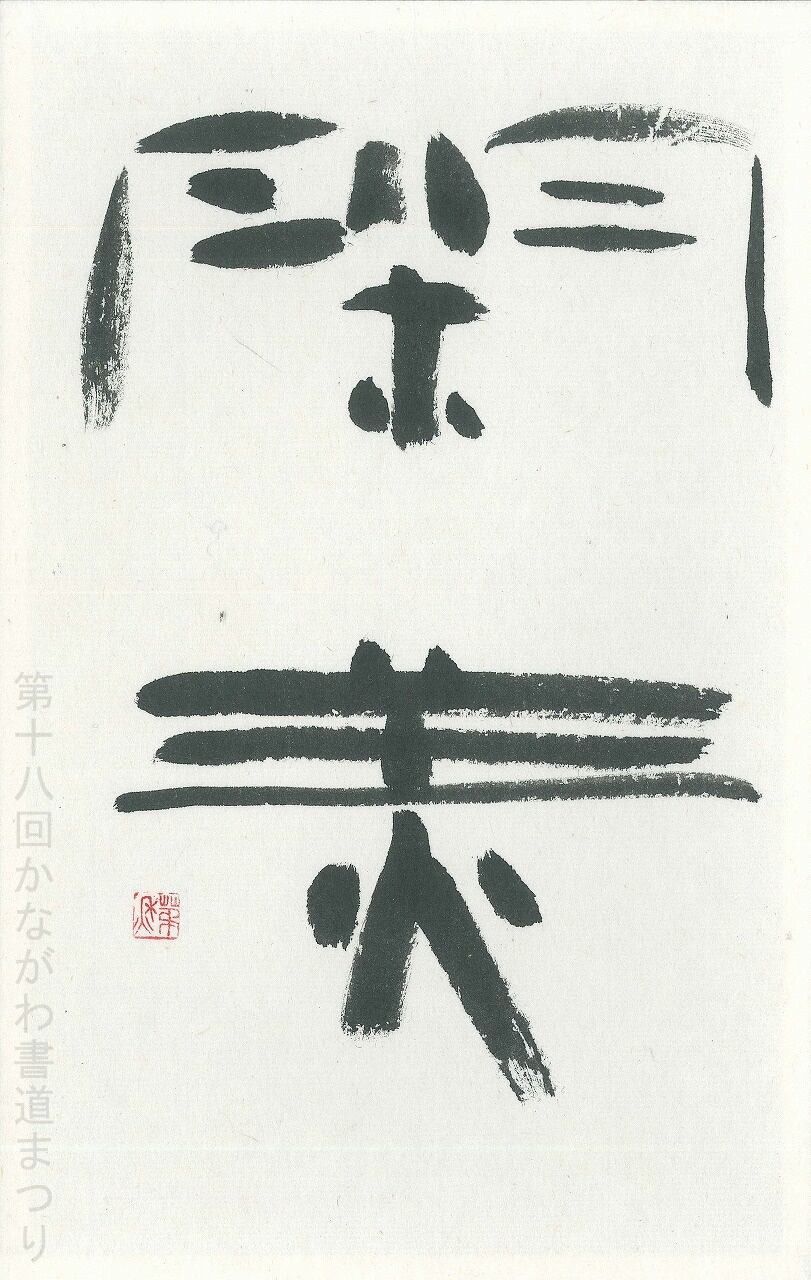 閑美
第十八回かながわ書道まつり